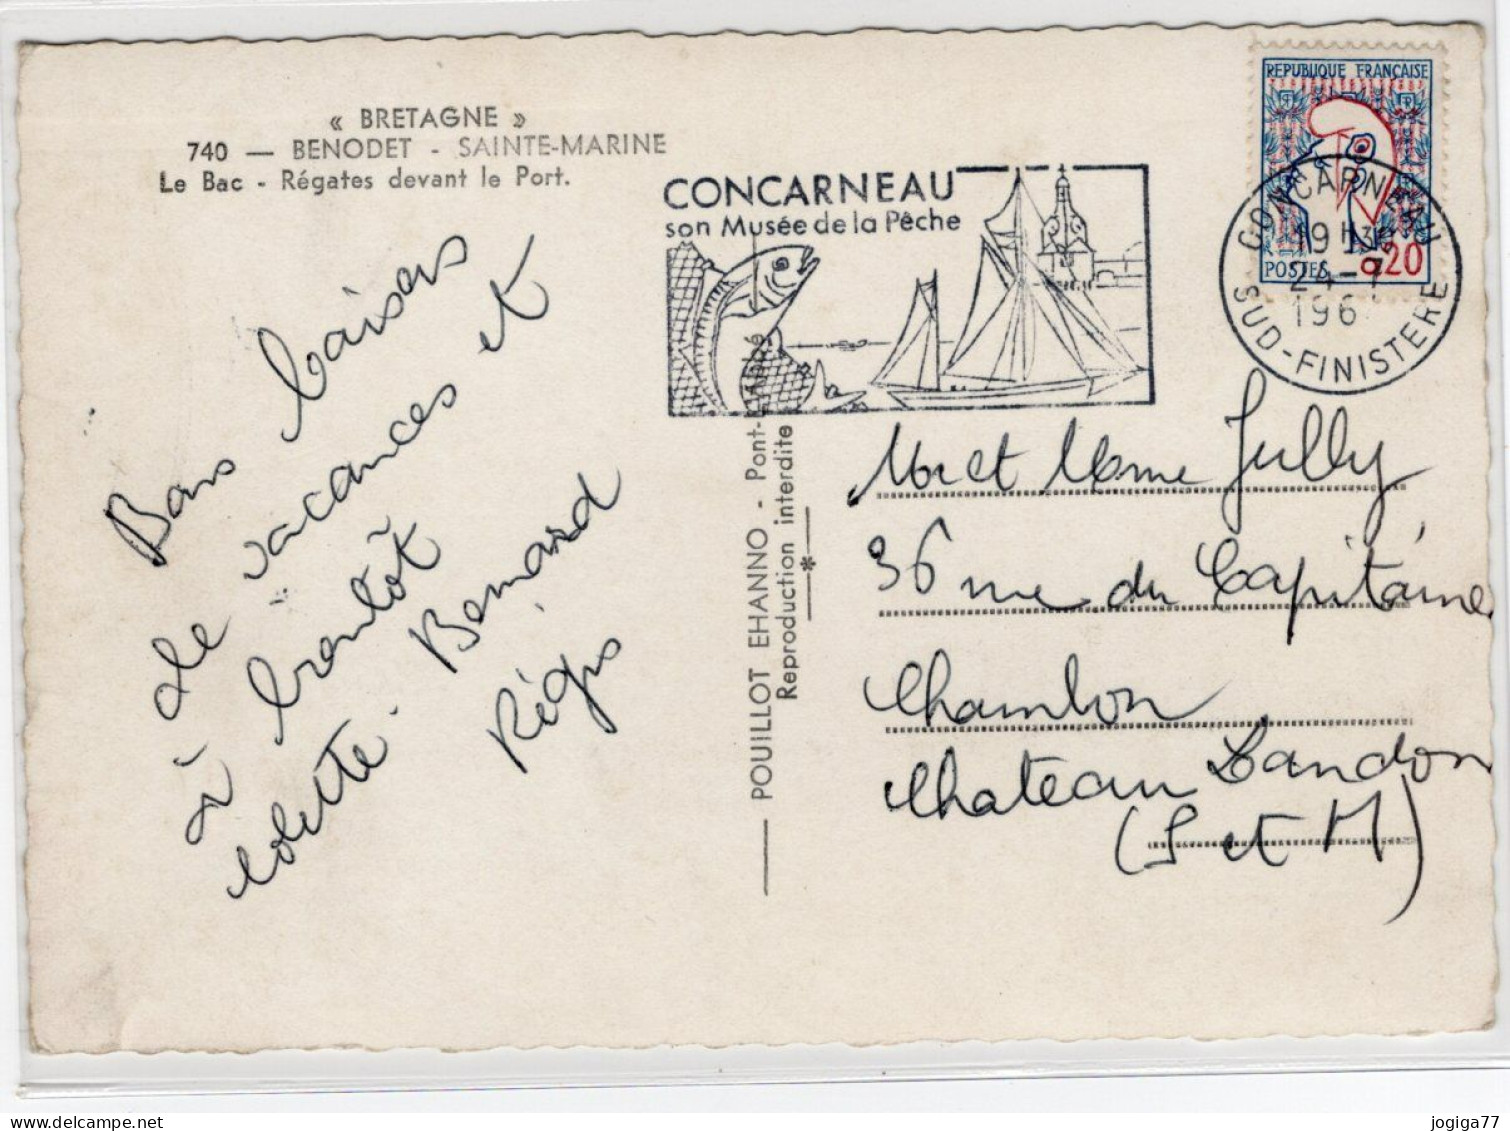 « BRETAGNE »
740 — BENODET - SAINTE-MARINE
Le Bac - Régates devant le Port.
Bons baisers
de vacances et
à bientôt
Colette. Bernard
Régis
POUILLOT EHANNO - Pont-
Reproduction interdite
CONCARNEAU
son Musée de la Pêche
REPUBLIQUE FRANÇAISE
POSTES 0,20
CONCARNEAU
19H30
24-7
196
SUD-FINISTERE
Mr et Mme Jully
36 rue du Capitaine
Chambon
Chateau Landon
(S et M)
jogiga77